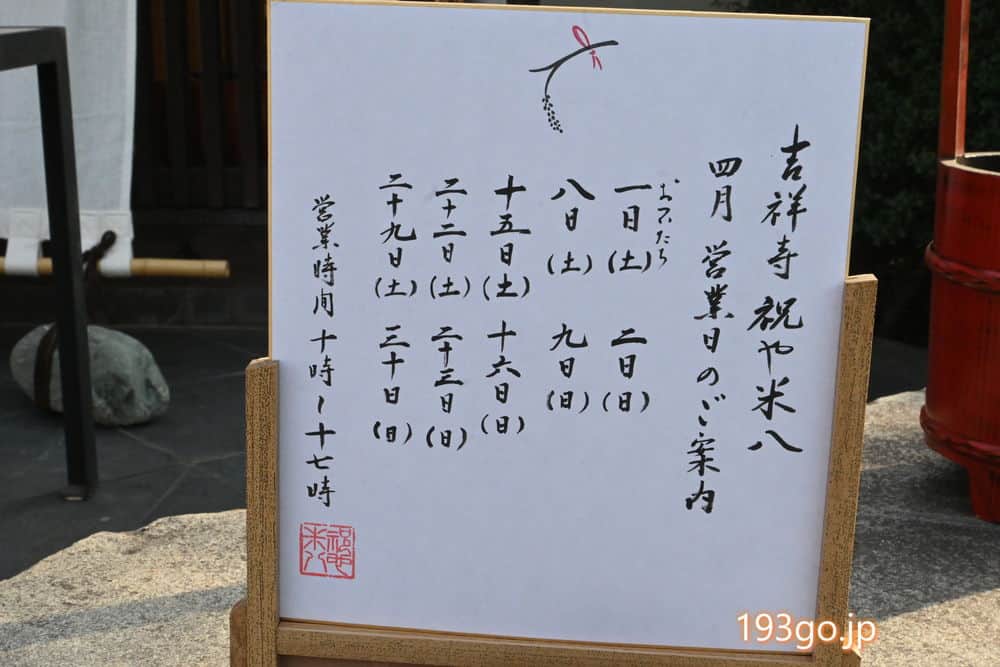 吉祥寺 祝や米八
四月 営業日のご案内
おついたち
一日(土) 二日(日)
八日(土) 九日(日)
十五日(土) 十六日(日)
二十二日(土) 二十三日(日)
二十九日(土) 三十日(日)
営業時间 十時〜十七時
193go.jp